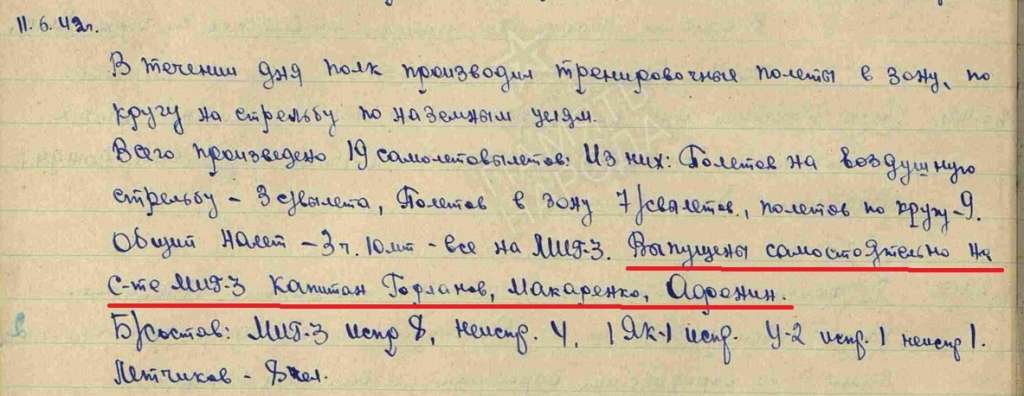 11.6.42г.
В течении дня полк производил тренировочные полеты в зону, по
кругу на стрельбу по наземным целям.
Всего произведено 19 самолетовылетов: Из них: Полетов на воздушную
стрельбу – 3 с/вылета, Полетов в зону 7/свылетов, полетов по кругу – 9.
Общий налет – 3ч. 10мт – все на МИГ-3. Выпущены самостоятельно на
с-те МИГ-3 Капитан Горланов, Макаренко, Афонин.
Б/состав: МИГ-3 испр 8, неиспр. 4, 1 Як-1 испр. У-2 испр. 1 неиспр 1.
Летчиков – 8 чел.
ПАМЯТЬ
НАРОДА